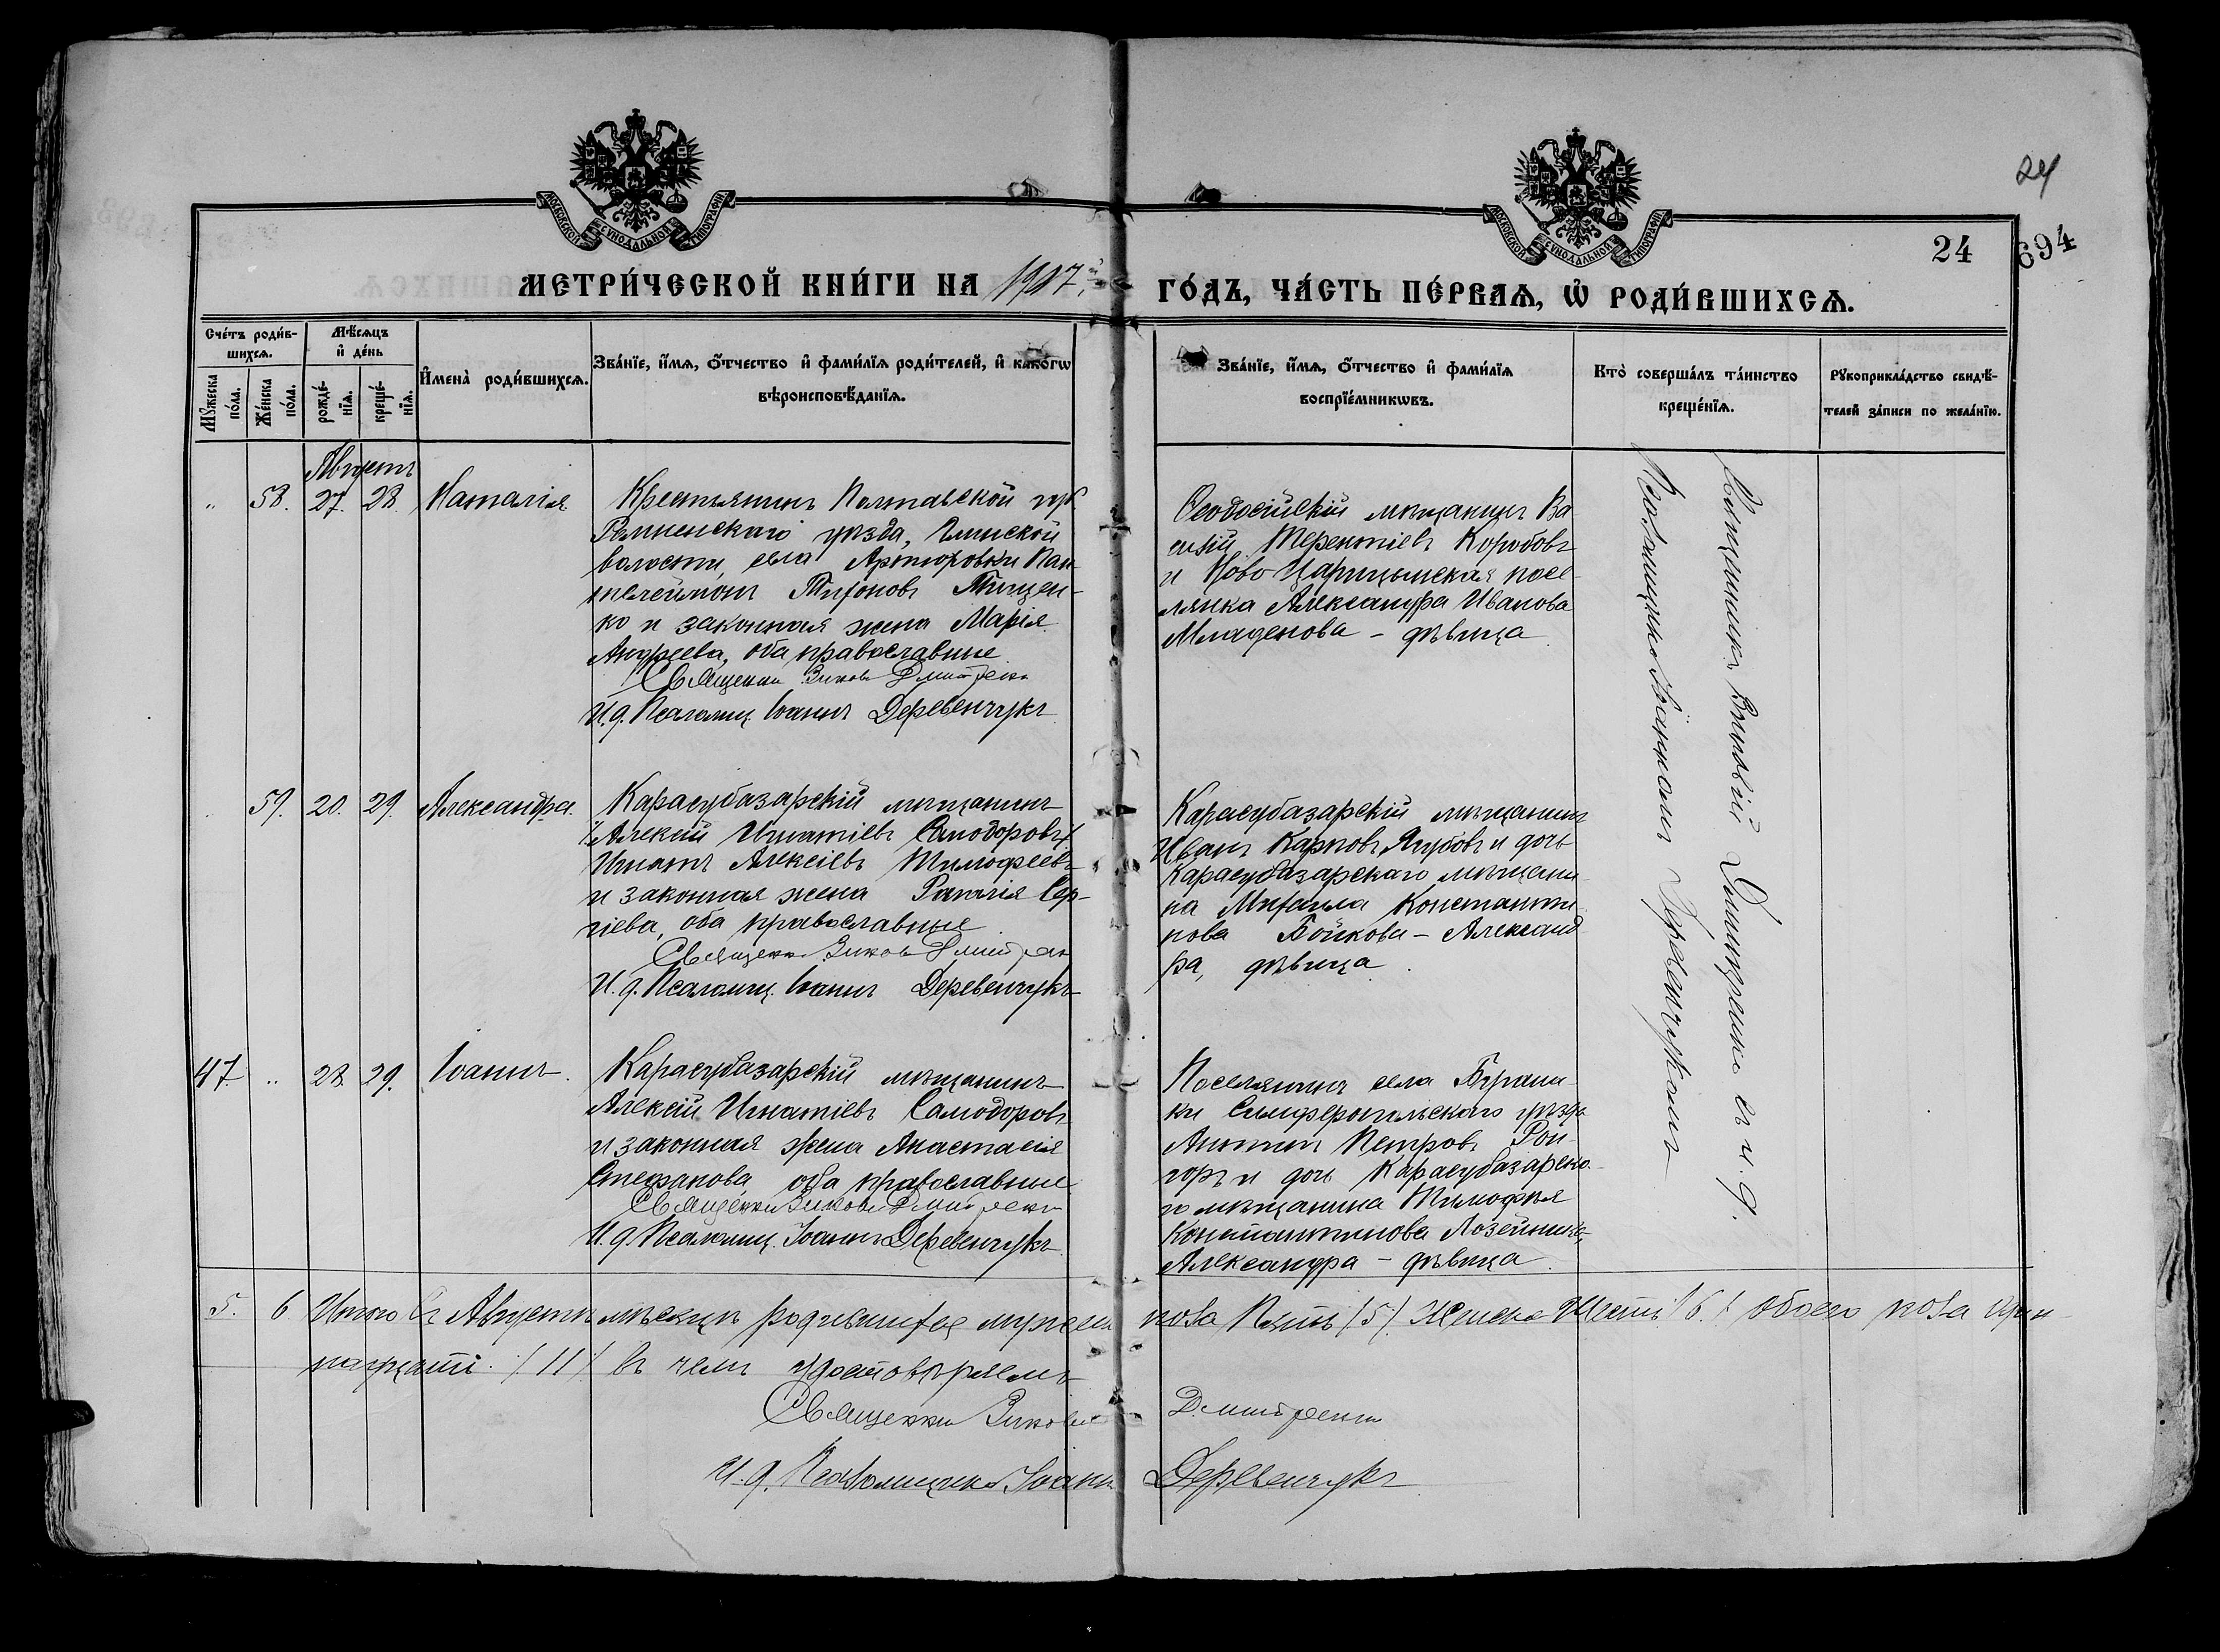 24
694
24
МОСКОВСКОЙ СѴНОДАЛЬНОЙ ТИПОГРАФІИ
МОСКОВСКОЙ СѴНОДАЛЬНОЙ ТИПОГРАФІИ
МЕТРИ́ЧЕСКОЙ КНИ́ГИ НА 1917й
ГО́ДЪ, ЧА́СТЬ ПЕ́РВАѦ, Ѡ҆ РОДИ́ВШИХСѦ.
Счётъ роди́в-
шихсѧ.
Мꙋ́жеска по́ла.
Же́нска по́ла.
Мѣ́сѧцъ
и҆ де́нь
рожде́-
нїѧ.
креще́-
нїѧ.
И҆мена̀ роди́вшихсѧ.
Зва́нїе, и҆́мѧ, ѻ҆́тчество и҆ фами́лїѧ роди́телей, и҆ како́гѡ
вѣроисповѣ́данїѧ.
Зва́нїе, и҆́мѧ, ѻ҆́тчество и҆ фами́лїѧ
воспрїе́мникѡвъ.
Кто̀ соверша́лъ та́инство
креще́нїѧ.
Рꙋкоприкла́дство свидѣ́-
телей за́писи по жела́нїю.
Августъ
„ 58. 27. 28. Наталія
Крестьянинъ Полтавской губ.
Роменскаго уѣзда, Глинской
волости, села Артюровки Пан-
телеимонъ Тихоновъ Тищен-
ко и законная жена Марія
Андреева, оба православные
Священни Зинови Дмитренко
И. д. Псаломщ. Іоаннъ Деревенчукъ
Ѳеодосійскій мѣщанинъ Ва
силій Терентіевъ Коробовъ
и Ново Царицынская посе-
лянка Александра Иванова
Младенова – дѣвица
59. 20. 29. Александра.
Карасубазарскій мѣщанинъ
/Алексій Игнатіевъ Самодоровъ/
Игнатъ Алексіевъ Тимофеевъ
и законная жена Сер-
гіева, оба православные
Священни Зинови Дмитренко
И. д. Псаломщ. Іоаннъ Деревенчукъ
Карасубазарскій мѣщанинъ
Иванъ Карповъ Якубовъ и дочь
Карасубазарскаго мѣщани-
на Михаила Константи-
нова Бойкова – Александ
ра, дѣвица.
47 „ 28. 29. Іоаннъ.
Карасубазарскій мѣщанинъ
Алексій Игнатіевъ Самодоровъ
и законная жена Анастасія
Стефанова, оба православные
Священни Зинови Дмитренко
И. д. Псаломщ. Іоаннъ Деревенчукъ
Поселянинъ села
ки Симферопольскаго уѣзда
Антонъ Петровъ
и дочь Карасубазарска-
го мѣщанина Тимофея
Константинова
Александра – дѣвица.
Священникъ Зиновій Дмитренко съ и. д.
Псаломщика Іоанномъ Деревенчукомъ
5. 6 Итого въ Августѣ мѣсяцѣ родившихся мужеска пола Пять /5/. Женска Шесть /6./ Обоего пола Один-
надцать /11/ въ чемъ удостовѣряемъ
Священни Зинови Дмитренко
И. д. Псаломщика Іоаннъ Деревенчукъ